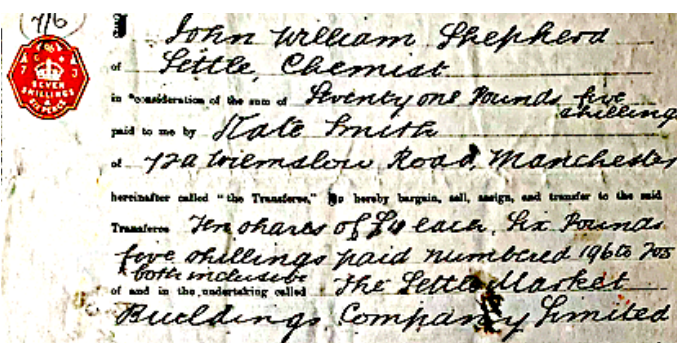 7/6
I John William Shepherd
SEVEN SHILLINGS & SIX PENCE
of Settle, Chemist
in consideration of the sum of Seventy one Pounds five shillings
paid to me by Kate Smith
of 72a Wilmslow Road, Manchester
hereinafter called "the Transferee," Do hereby bargain, sell, assign, and transfer to the said
Transferee Ten shares of each, Six Pounds
five shillings paid numbered 196 to 205
both inclusive
of and in the undertaking called The Settle Market
Buildings Company Limited